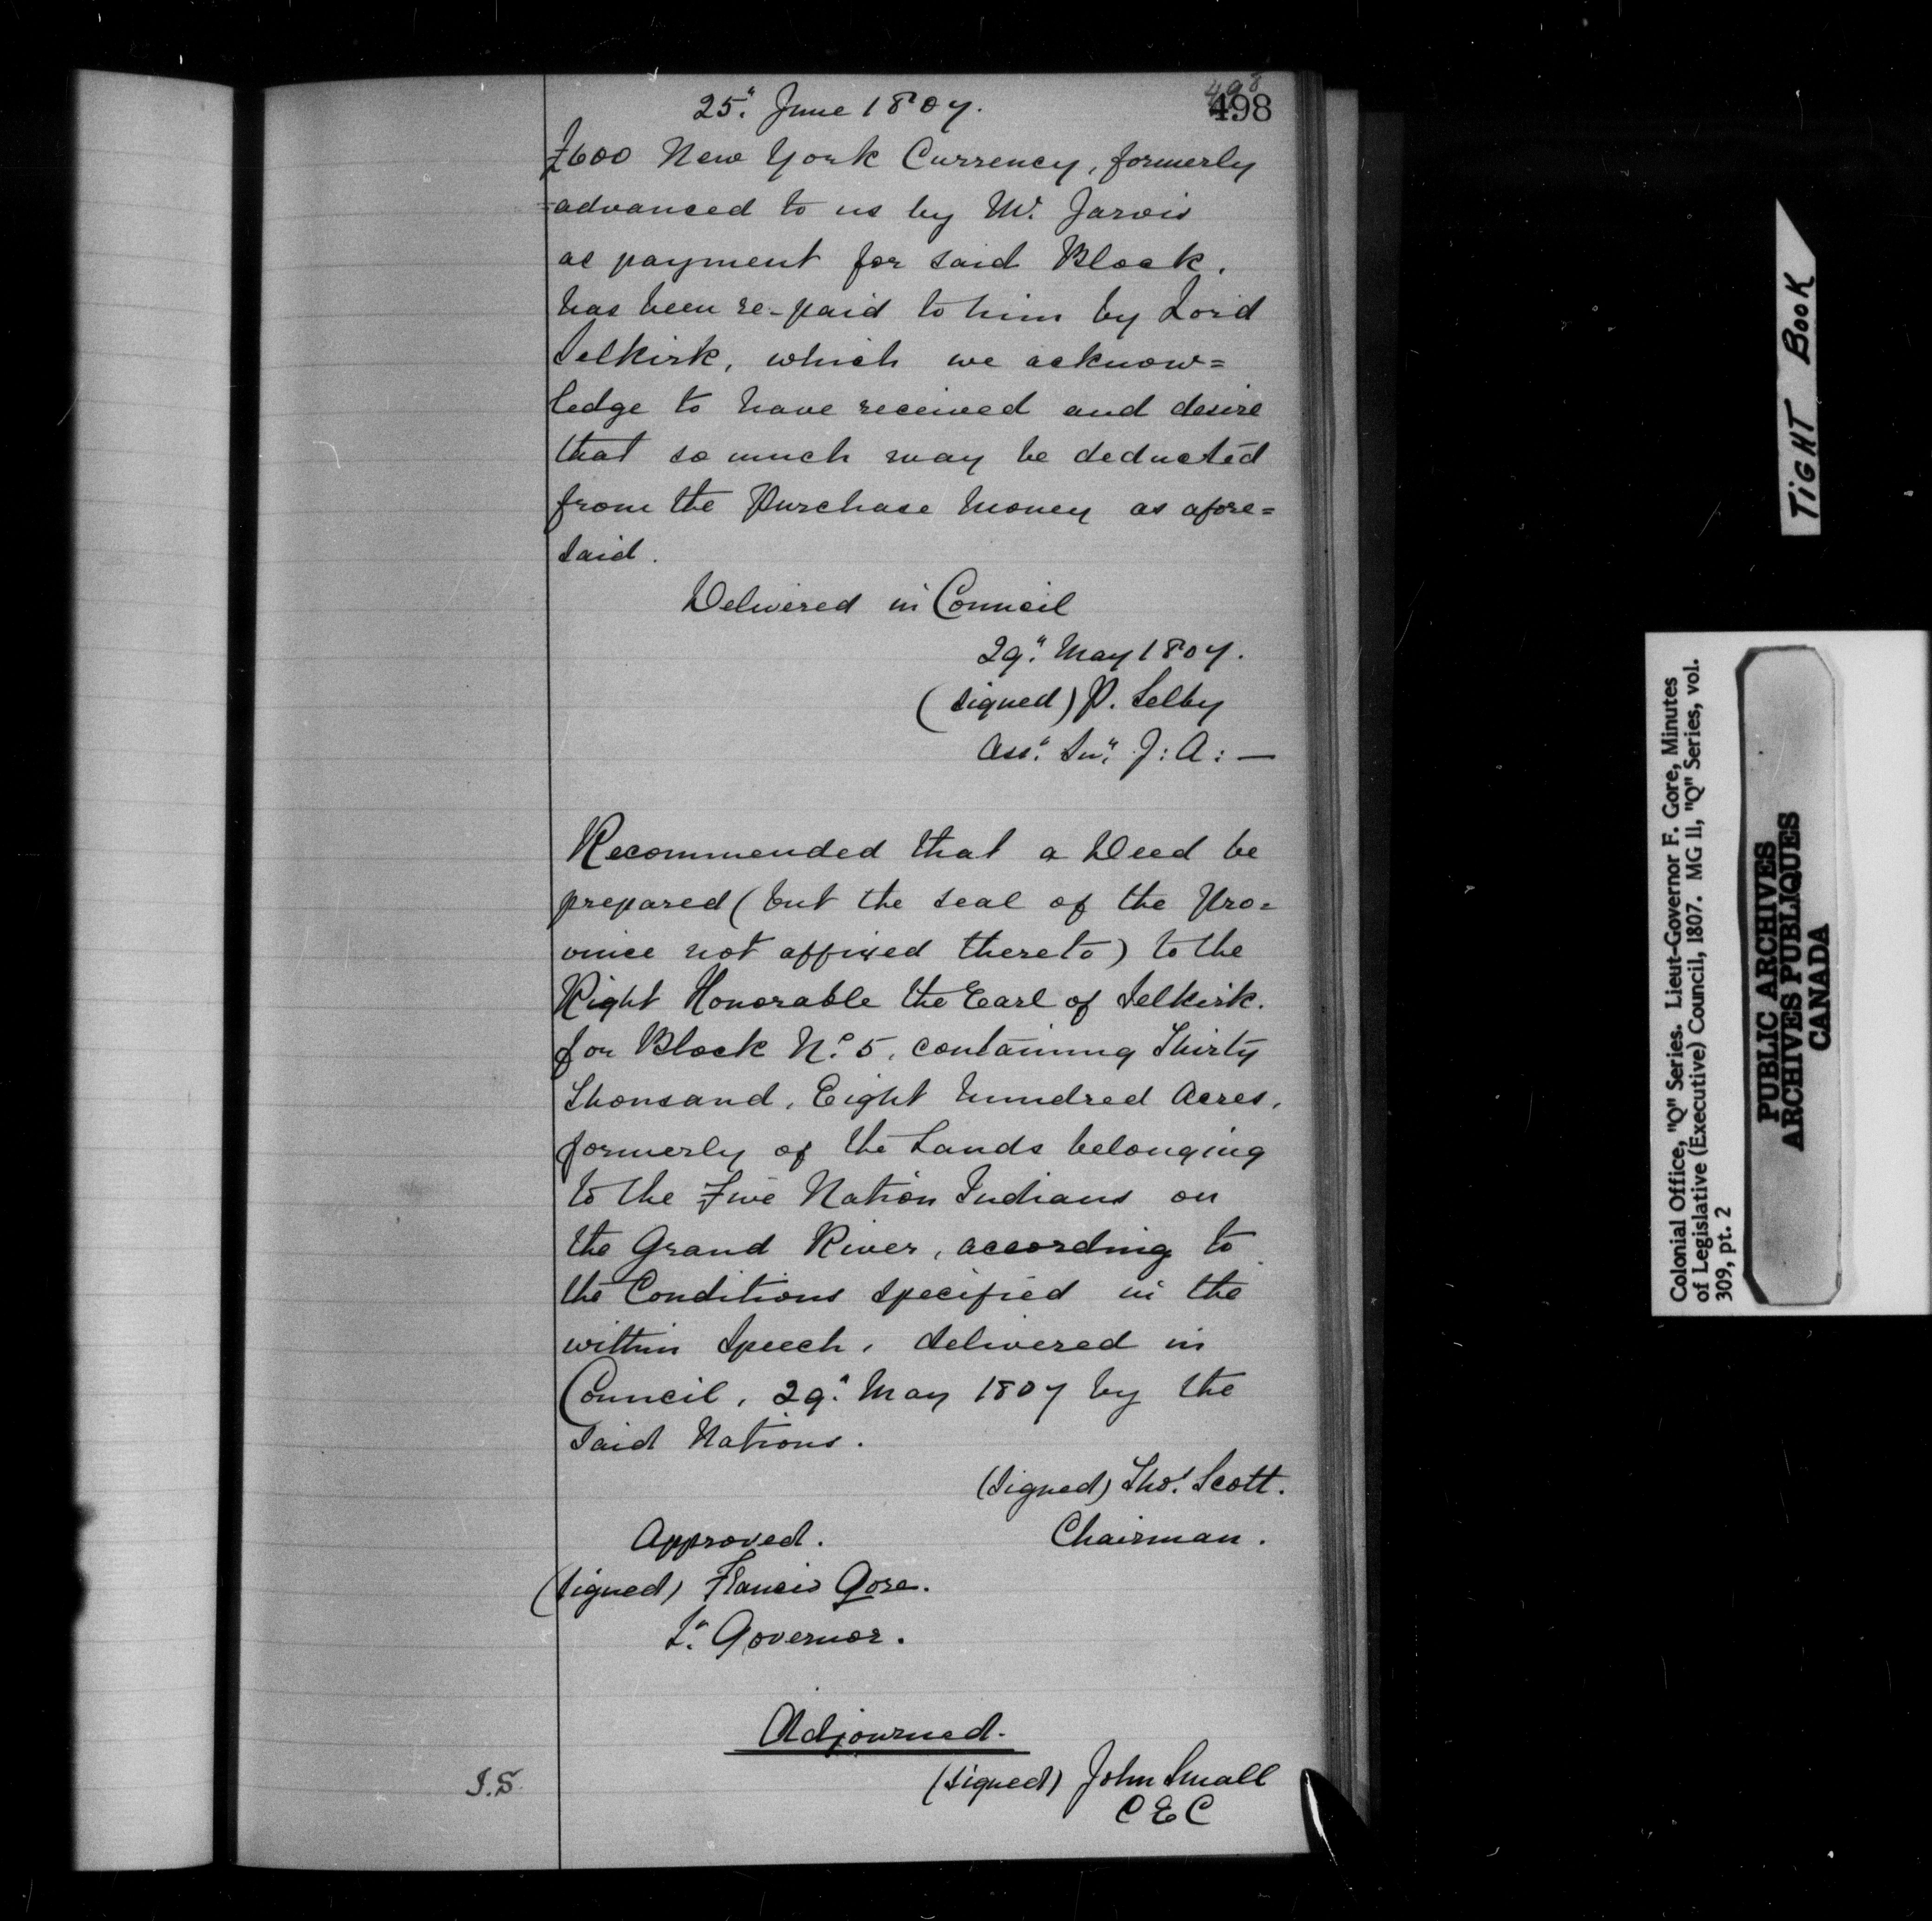 498
25." June 1807.
498
£600 New York Currency, formerly
=advanced to us by Mr. Jarvis
as payment for said Block,
has been re-paid to him by Lord
Selkirk, which we acknow=
ledge to have received and desire
that so much may be deducted
from the Purchase Money as afore=
said.
Delivered in Council
29." May 1807.
(signed) P. Selby
Ass." Sec." J: A: —
Recommended that a Deed be
prepared (but the seal of the Pro=
vince not affixed thereto) to the
Right Honorable the Earl of Selkirk.
for Block No. 5, containing Thirty
Thousand, Eight hundred Acres,
formerly of the Lands belonging
to the Five Nation Indians on
the Grand River, according to
the Conditions specified in the
within Speech, delivered in
Council, 29." May 1807 by the
said Nations.
(signed) Thos. Scott.
Chairman.
Approved.
(signed) Francis Gore.
Lt. Governor.
Adjourned.
(signed) John Small
C E C
J.S.
TIGHT BOOK
Colonial Office, "Q" Series. Lieut-Governor F. Gore, Minutes
of Legislative (Executive) Council, 1807. MG 11, "Q" Series, vol.
309, pt. 2
PUBLIC ARCHIVES
ARCHIVES PUBLIQUES
CANADA